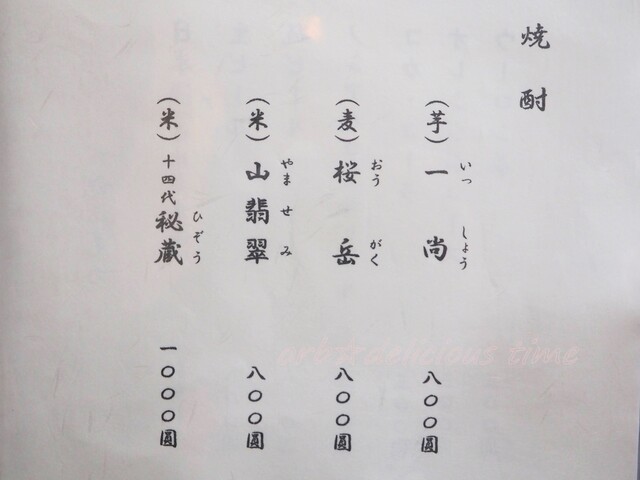 焼酎
（芋）一尚 いっしょう 八〇〇圓
（麦）桜岳 おうがく 八〇〇圓
（米）山翡翠 やませみ 八〇〇圓
（米）十四代秘蔵 ひぞう 一〇〇〇圓